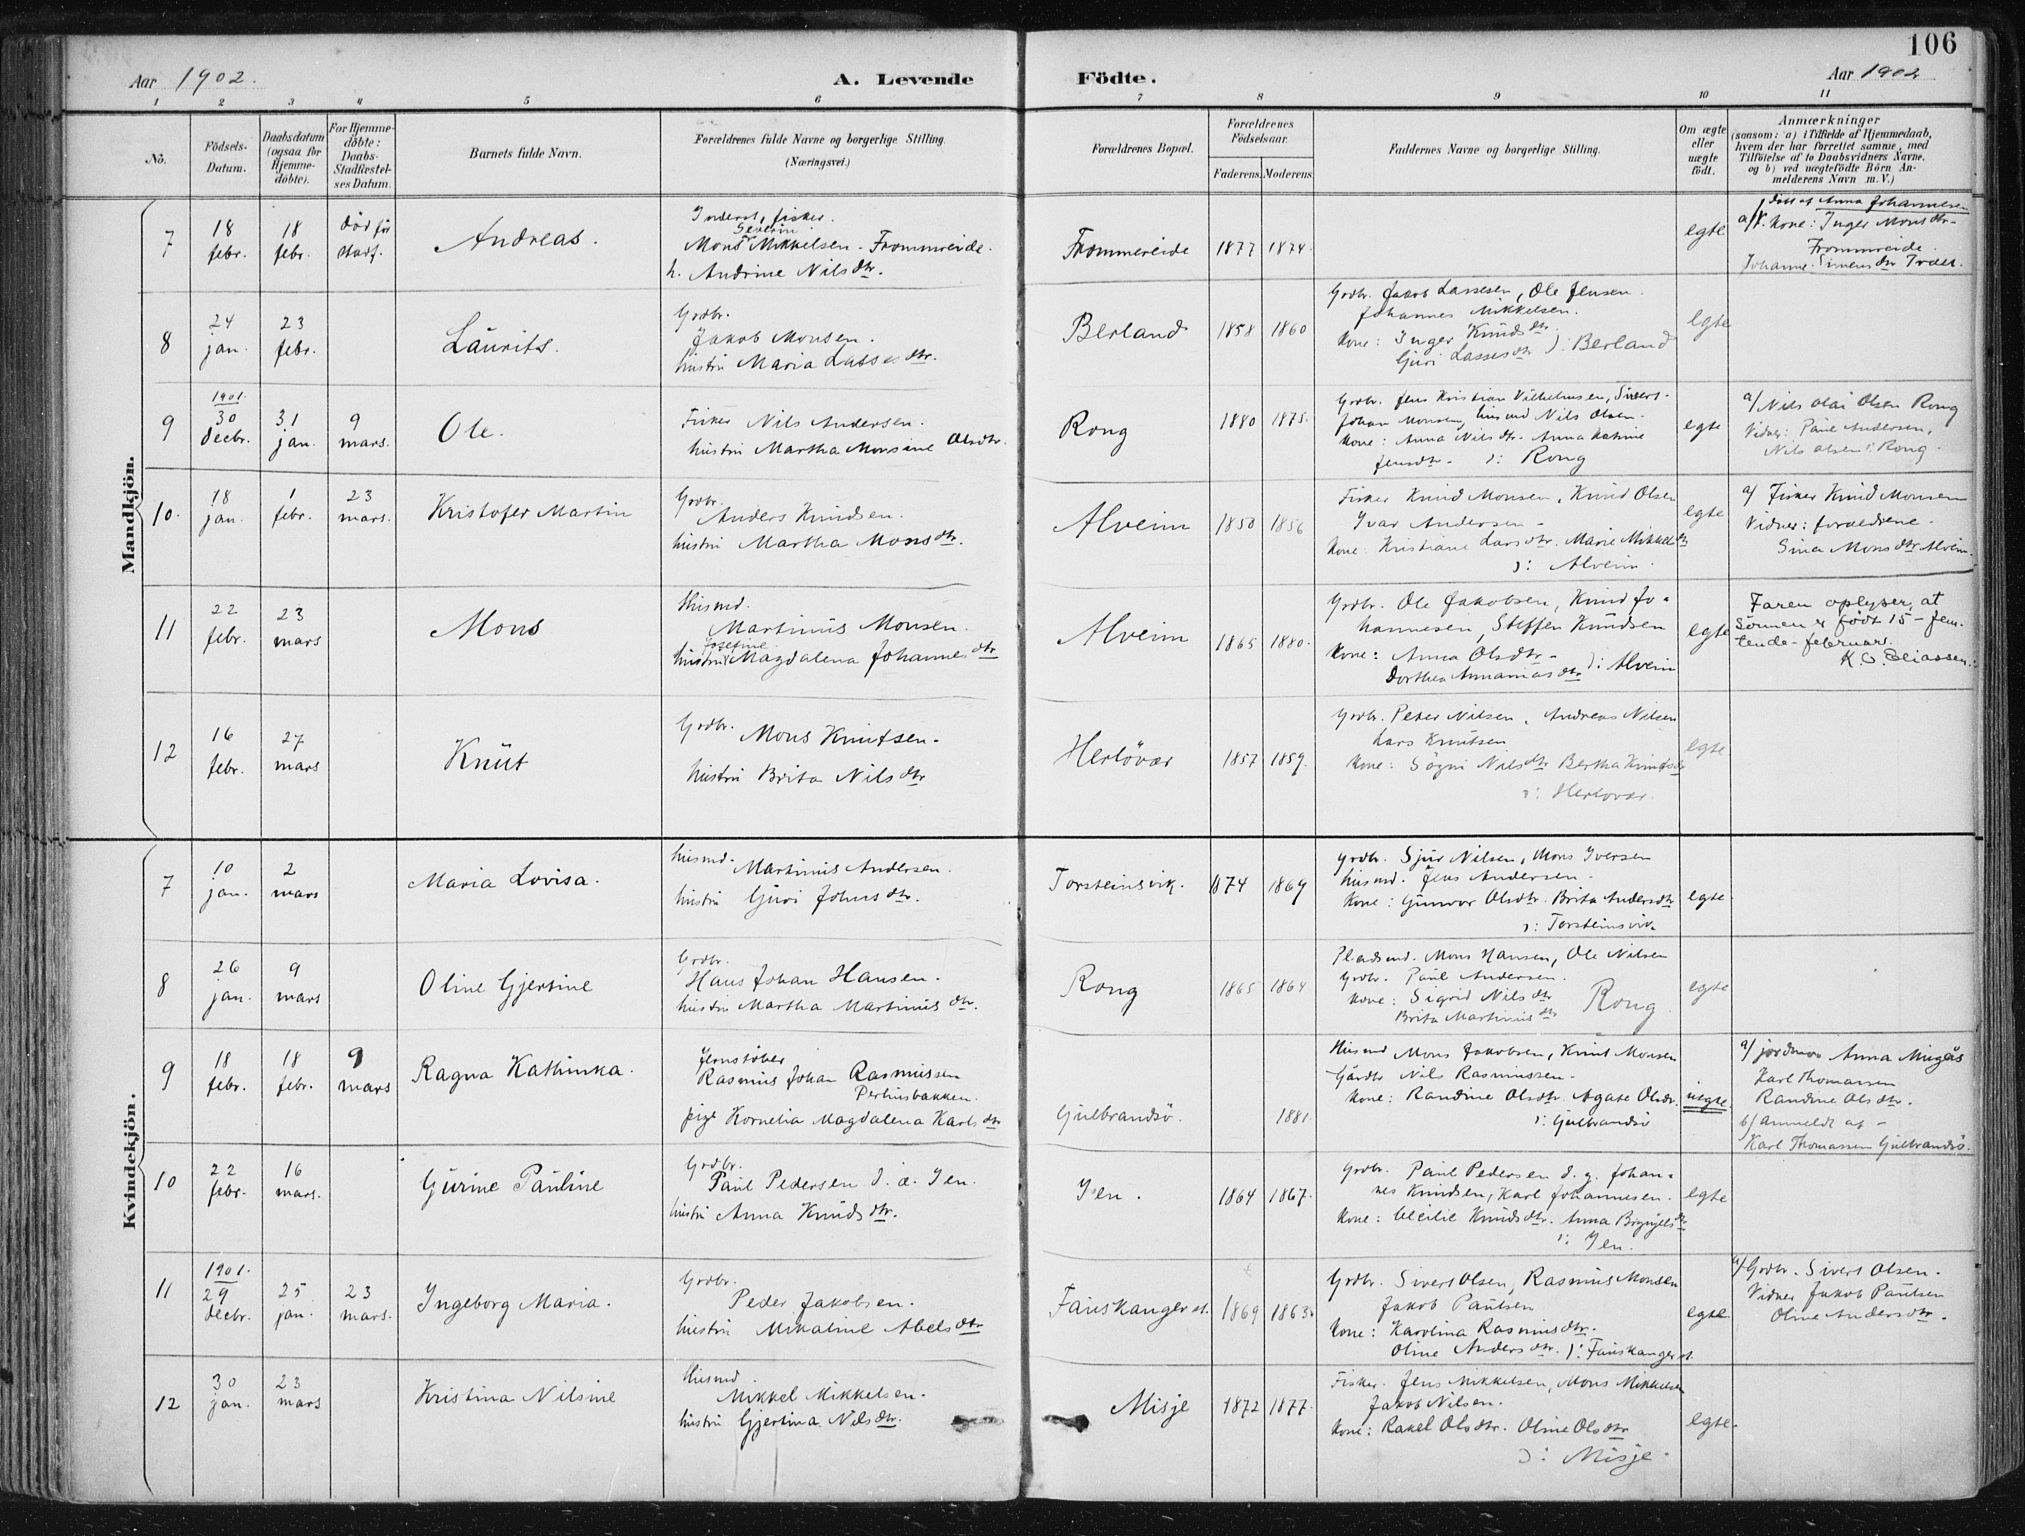 106
Aar 1902. A. Levende Fødte. Aar 1902
1 2 3 4 5 6 7 8 9 10 11
No.
Födsels-
Datum.
Daabsdatum
(ogsaa for
Hjemme-
døbte).
For Hjemme-
döbte:
Daabs-
Stadfæstel-
ses Datum.
Barnets fulde Navn.
Forældrenes fulde Navne og borgerlige Stilling.
(Næringsvei.)
Forældrenes Bopæl.
Forældrenes
Födselsaar.
Faderens. Moderens.
Faddernes Navne og borgerlige Stilling.
Om ægte
eller
uægte
født.
Anmærkninger
(saasom: a) i Tilfælde af Hjemmedaab,
hvem der har forrettet samme, med
Tilføielse af to Daabsvidners Navne,
og b) ved uægtefødte Börn An-
melderens Navn m. V.)
Mandkjön.
7
18
febr.
18
febr.
död för
stadf.
Andreas.
Inderst, fisker.
Severin
Mons Mikkelsen - Frommreide.
h. Andrine Nilsdtr.
Frommereide
1877 1874.
egte
döbt af Anna Johannesen
a/ kone: Inger Monsdtr-
Frommreide.
Johanne Simensdtr Træet.
8
24
jan.
23
febr.
Laurits.
Grdbr.
Jakob Monsen.
hustru Maria Lassesdtr.
Berland
1858 1860
Grdbr. Jakob Lassesen, Ole Jensen.
Johannes Mikkelsen.
Kone: Inger Knudsdtr.
Guri Lassesdtr ): Berland
egte
9
1901.
30
decbr.
31
jan.
9
mars.
Ole.
Fisker Nils Andersen.
hustru Martha Monsine Olsdtr.
Rong
1880 1875.
Grdbr. Jens Kristian Vilhelmsen, Sivert-
Johan Monsen, husmd Nils Olsen.
Kone: Anna Nilsdtr. Anna Katrine
Jensdtr. ): Rong
egte
a/ Nils Olai Olsen Rong
Vidner: Paul Andersen,
Nils Olsen ): Rong.
10.
18
jan.
1
febr.
23
mars.
Kristofer Martin
Grdbr.
Anders Knudsen.
hustru Martha Monsdtr.
Alveim
1850 1856
Fisker Knud Monsen, Knud Olsen
Ivar Andersen -
Kone: Kristiane Larsdtr. Marie Mikkelsdtr
): Alveim.
egte
a/ Fisker Knud Monsen
Vidner: forældrene -
Sina Monsdtr Alveim.
11
22
febr.
23
mars
Mons
Husmd.
Martinus Monsen.
Josefine
hustru Magdalena Johannesdtr
Alveim
1865 1880.
Grdbr. Ole Jakobsen, Knud Jo-
hannesen, Steffen Knudsen
Kone: Anna Olsdtr-
Dorthea Annaniasdtr ): Alveim
egte
Faren oplyser, at
sønnen er født 15 - fem-
tende - februar.
K. O. Eliassen.
12
16
febr.
27
mars
Knut
Grdbr. Mons Knutsen.
hustru Brita Nilsdtr
Herlövær
1857 1859.
Grdbr. Peter Nilsen, Andreas Nilsen
Lars Knutsen
Kone: Sögni Nilsdtr Bertha Knutsdtr
): Herlovær.
egte
Kvindekjön.
7
10
jan.
2
mars
Maria Lovisa.
husmd. Martinus Andersen.
hustru Guri Johnsdtr.
Torsteinsvik.
1874 1869
Grdbr. Sjur Nilsen, Mons Iversen
husmd. Jens Andersen.
Kone: Gunvor Olsdtr. Brita Andersdtr
): Torsteinsvik
egte.
8
26
jan.
9
mars
Oline Gjertine
Grdbr.
Hans Johan Hansen.
hustru Martha Martinusdtr.
Rong
1865 1864
Pladsmd. Mons Hansen, Ole Nilsen
Grdbr. Paul Andersen.
Kone: Sigrid Nilsdtr
Brita Martinusdtr Rong
egte
9
18
febr.
18
febr.
9
mars
Ragna Kathinka.
Jernstøber
Rasmus Johan Rasmussen
Perhusbakken.
pige Kornelia Magdalena Karlsdtr
Gulbrandsö.
1881.
Husmd Mons Jakobsen, Knut Monsen
Gårdbr Nils Rasmussen.
Kone: Randine Olsdtr. Agate Olsdtr.
): Gulbrandsö
uegte.
a/ jordmor Anna Mugås
Karl Thomassen
Randine Olsdtr.
b/ Anmeldt af -
Karl Thomassen Gulbrandsö.
10
22
febr.
16
mars.
Gurine Pauline
Grdbr.
Paul Pedersen d. æ. Yen.
hustru Anna Knudsdtr.
Yen.
1864 1867.
Grdbr. Paul Pedersen d. y. Johan-
nes Knudsen, Karl Johannesen.
Kone: Cecilie Knudsdtr. Anna Brynjelsdtr
): Yen.
egte
11
1901.
29
decbr.
25
jan.
23
mars.
Ingeborg Maria.
Grdbr.
Peder Jakobsen.
hustru Mikaline Abelsdtr
Fauskanger st.
1869 1863.
Grdbr. Sivert Olsen, Rasmus Monsen
Jakob Paulsen
Kone: Karolina Rasmusdtr.
Oline Andersdtr. ): Fauskanger st.
egte
a/ Grdbr. Sivert Olsen.
Vidner Jakob Paulsen
Oline Andersdtr.
12
30
jan.
23
mars
Kristina Nilsine
Husmd
Mikkel Mikkelsen.
hustru Gjertina Nilsdtr.
Misje
1872 1877.
Fisker. Jens Mikkelsen, Mons Mikkelsen
Jakob Nilsen.
Kone: Rakel Olsdtr. Oline Olsdtr
): Misje.
egte.